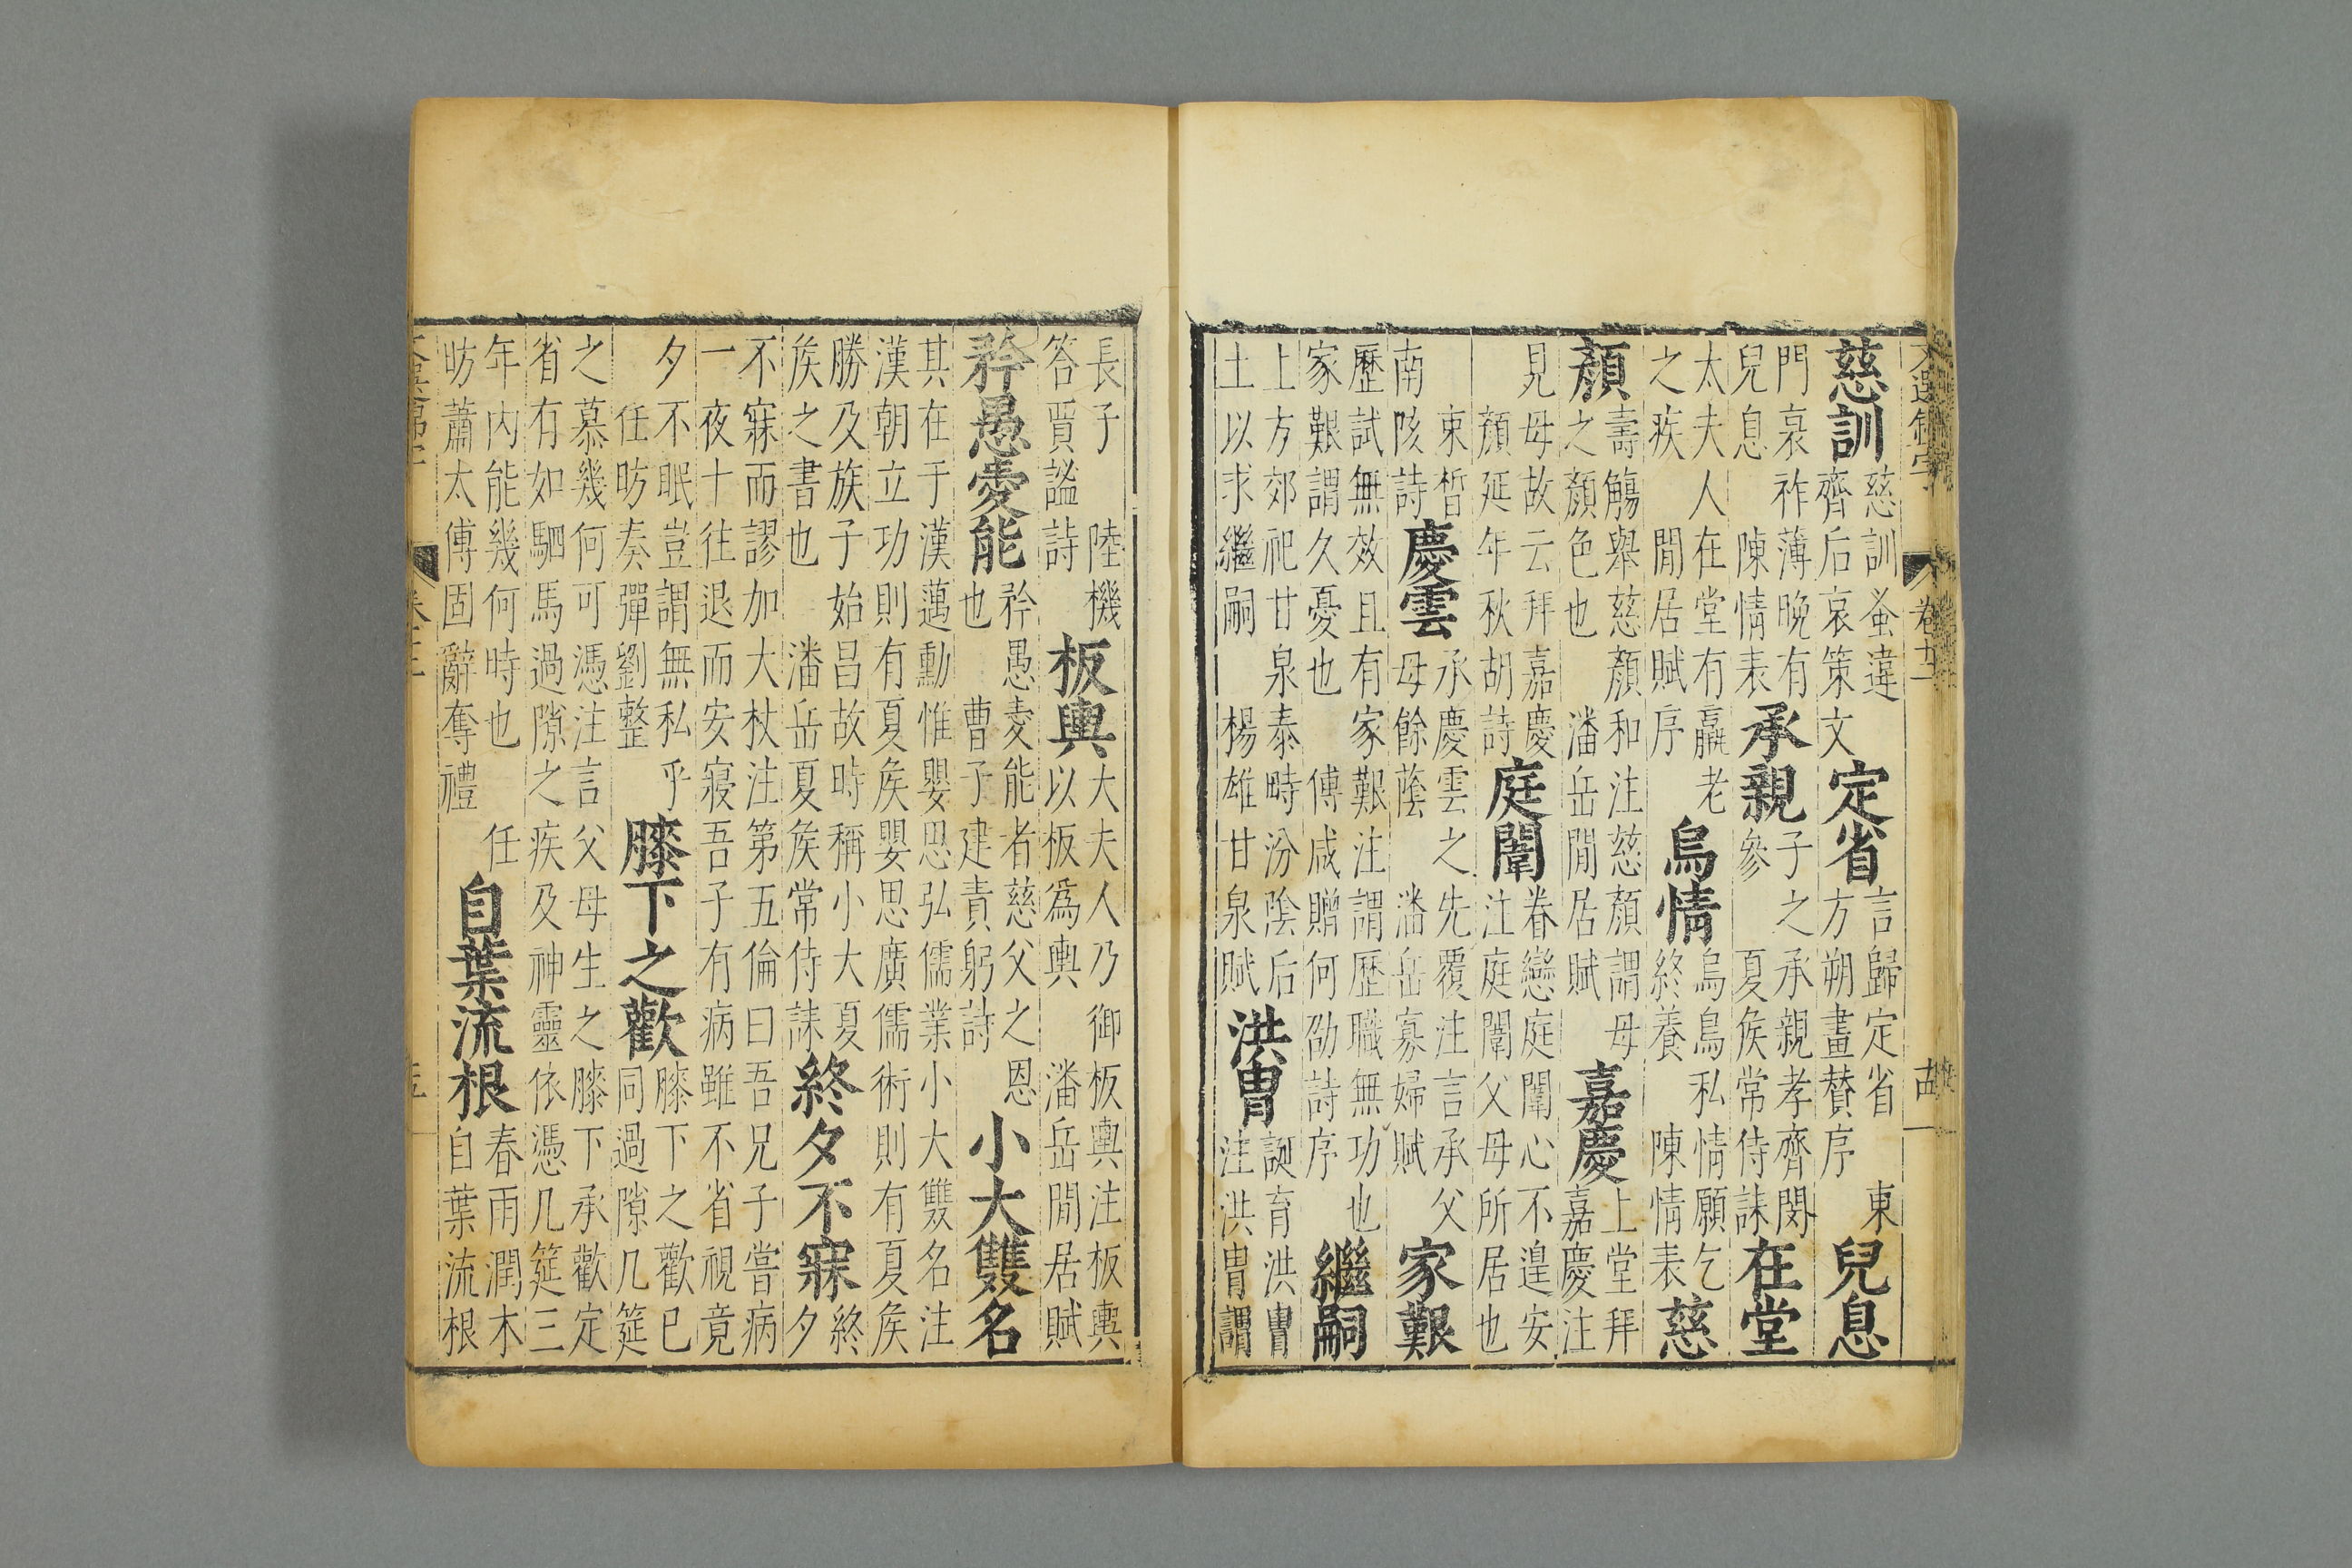 慈訓
慈訓蚤違
齊后哀策文
定省
言歸定省 東
方朔畫賛序
兒息
門衰祚薄晚有
兒息 陳情表
承親
子之承親孝齊閔
參 夏侯常侍誄
在堂
太夫人在堂有羸老
之疾 閒居賦序
烏情
烏鳥私情願乞
終養 陳情表
慈
顏
壽觴舉慈顏和注慈顏謂母
之顏色也 潘岳閒居賦
嘉慶
上堂拜
嘉慶注
見母故云拜嘉慶
顏延年秋胡詩
庭闈
眷戀庭闈心不遑安
注庭闈父母所居也
束皙
南陔詩
慶雲
承慶雲之先覆注言承父
母餘蔭 潘岳寡婦賦
家艱
歷試無效且有家艱注謂歷職無功也
家艱謂久憂也 傅咸贈何劭詩序
繼嗣
上方郊祀甘泉泰畤汾陰后
土以求繼嗣 楊雄甘泉賦
洪胄
誕育洪胄
注洪胄謂
長子 陸機
答賈謐詩
板輿
大夫人乃御板輿注板輿
以板爲輿 潘岳閒居賦
矜愚愛能
矜愚愛能者慈父之恩
也 曹子建責躬詩
小大雙名
其在于漢邁勳惟嬰思弘儒業小大雙名注
漢朝立功則有夏侯嬰思廣儒術則有夏侯
勝及族子始昌故時稱小大夏
侯之書也 潘岳夏侯常侍誄
終夕不寐
終
夕
不寐而謬加大杖注第五倫曰吾兄子嘗病
一夜十往退而安寢吾子有病雖不省視竟
夕不眠豈謂無私乎
任昉奏彈劉整
膝下之歡
膝下之歡已
同過隙几筵
之慕幾何可憑注言父母生之膝下承歡定
省有如駟馬過隙之疾及神靈依憑几筵三
年內能幾何時也 任
昉蕭太傅固辭奪禮
自葉流根
春雨潤木
自葉流根